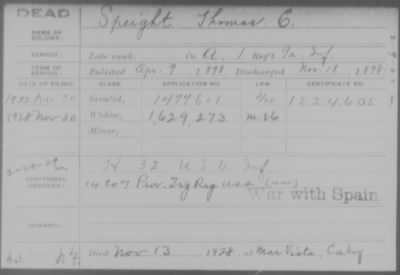 DEAD
Speight, Thomas C.
NAME OF
SOLDIER:
SERVICE:
Late rank, Co. A, 1 Reg't Inf.
TERM OF
SERVICE:
Enlisted Apr. 9, 1898 Discharged Nov. 18, 1898.
DATE OF FILING. CLASS. APPLICATION NO. LAW. CERTIFICATE NO.
Invalid, 1477601 1224605
1928 Nov 30 Widow, 1,629,273 m.26
Minor,
H 32 U S V. Inf.
ADDITIONAL
SERVICES:
14 Co 7 Prov. Reg USA
War with Spain
REMARKS:
Died Nov 13, 1928, at Mar Vista, Calif